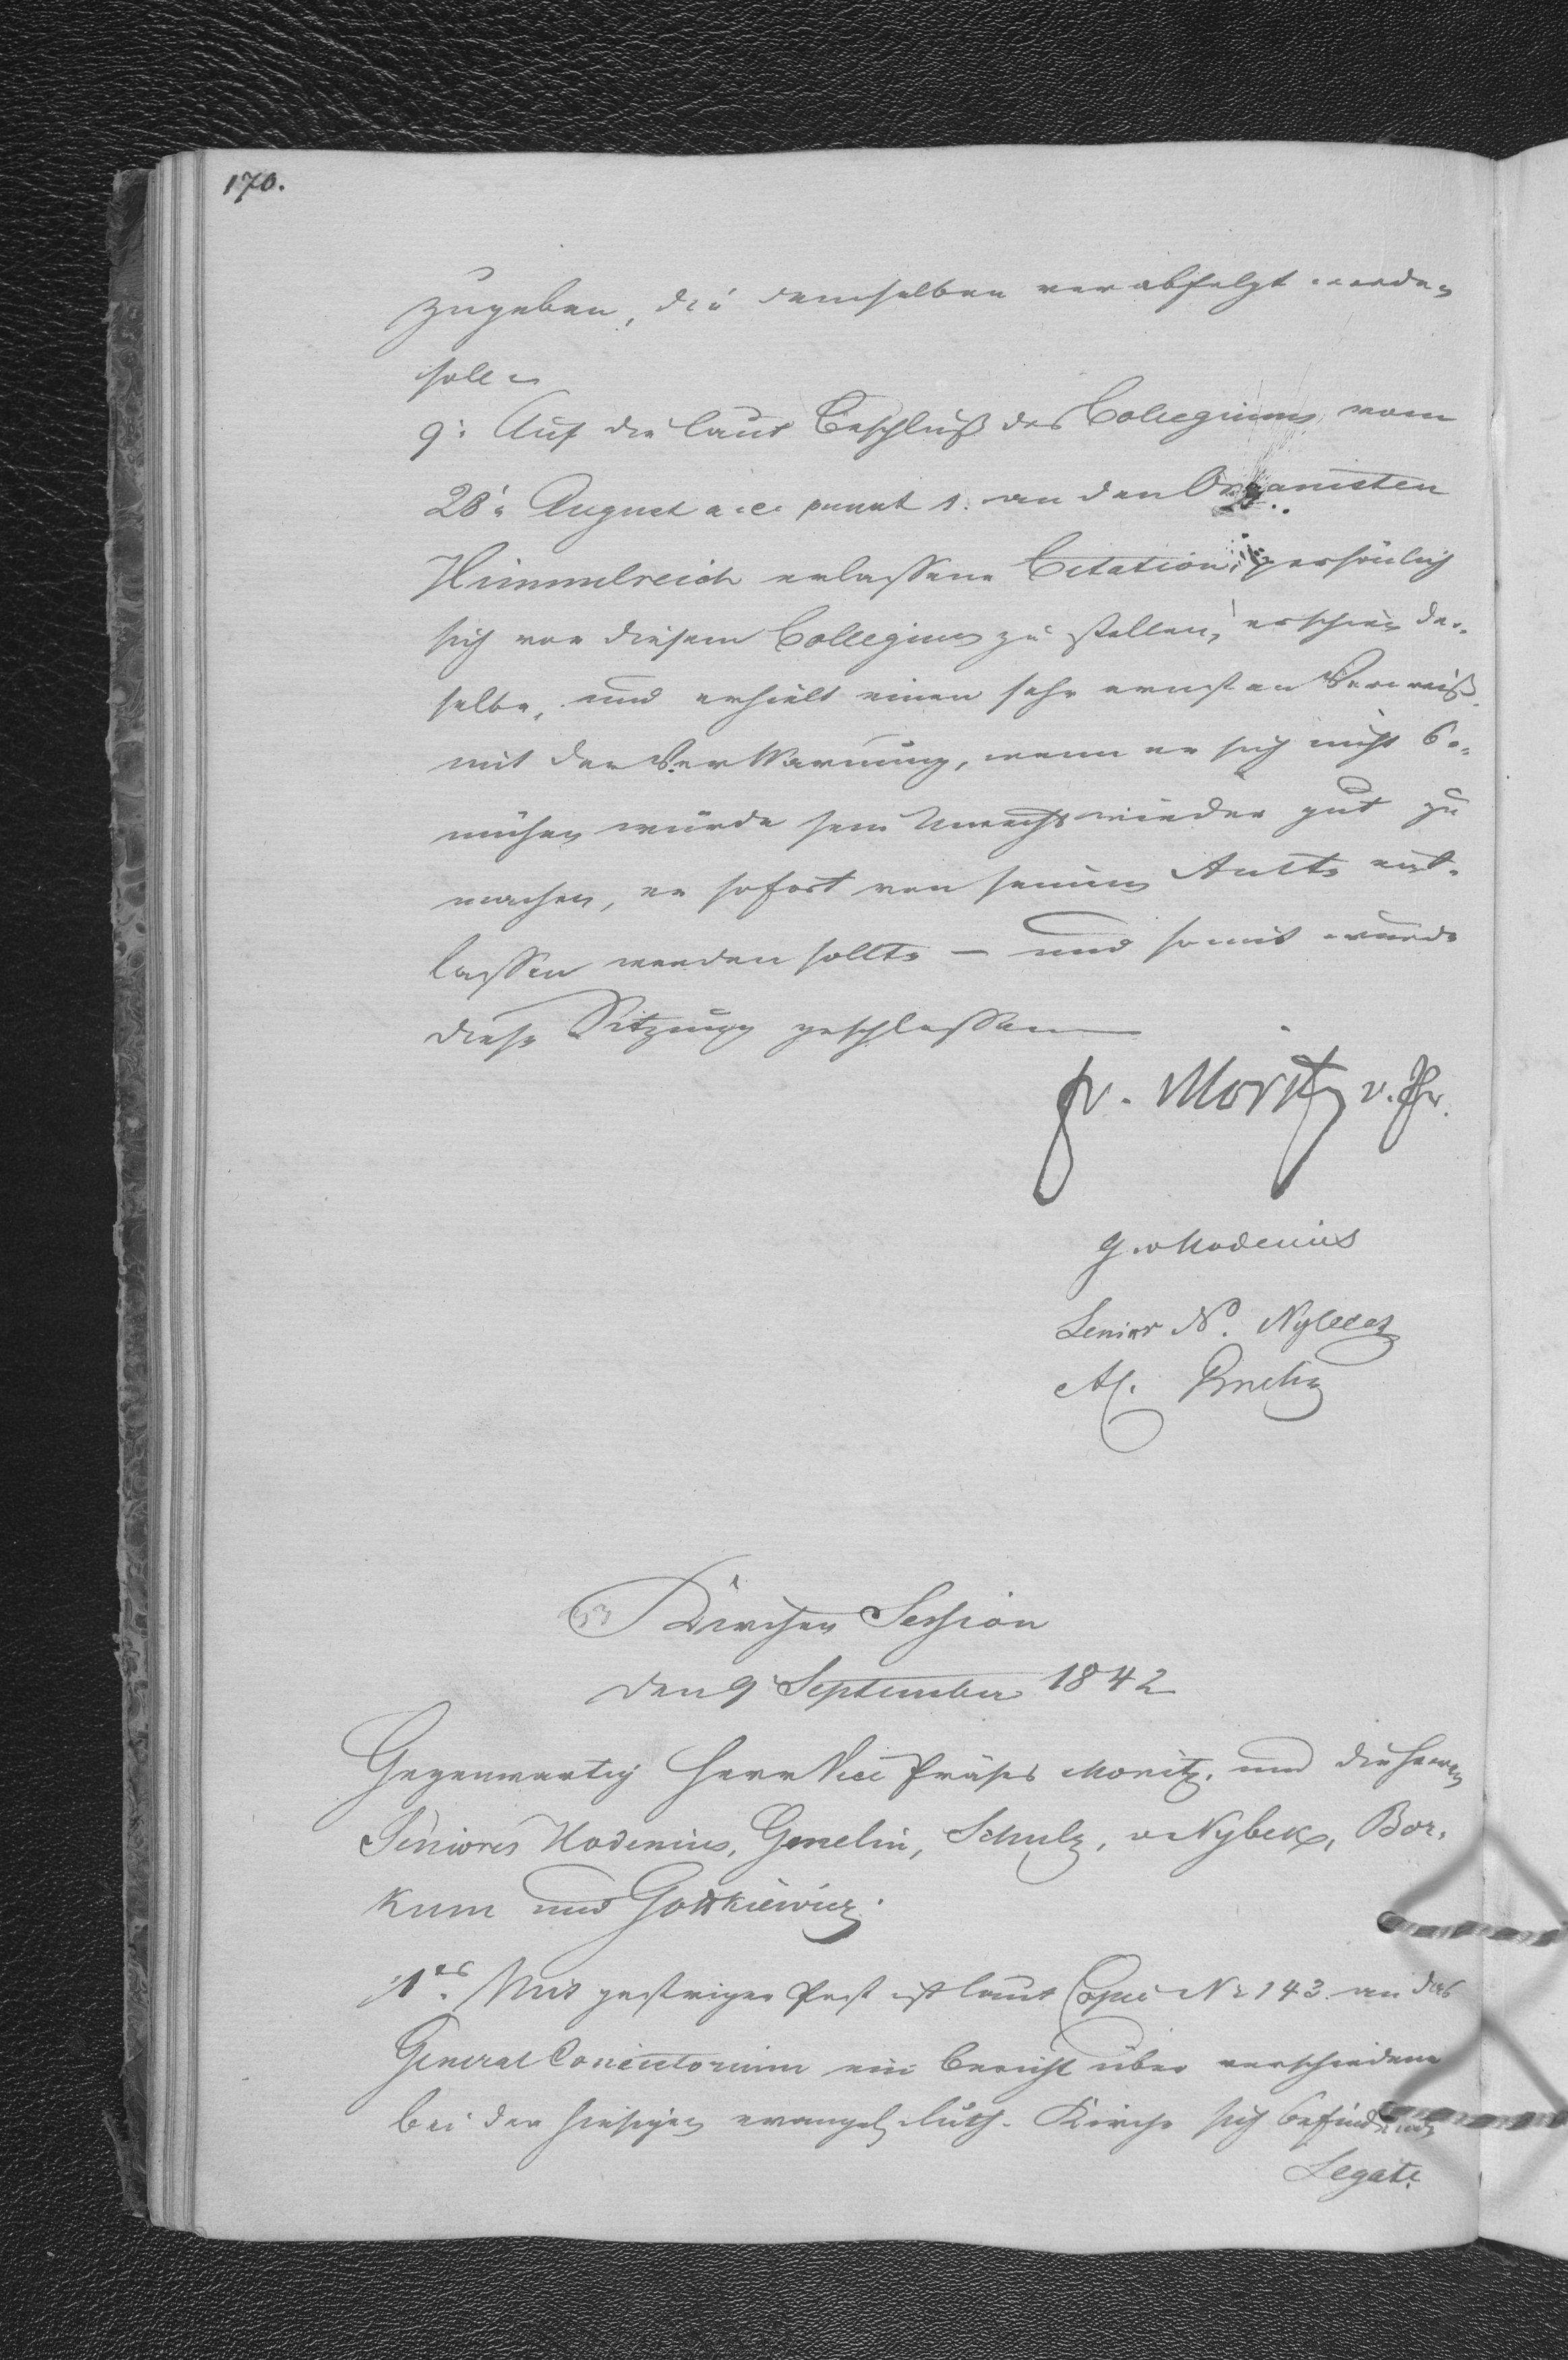 170.
zugeben, die demselben verabfolgt werden
solle
9: Auf die laut Beschluß des Collegiums vom
28: August a. c. punct 1. an den Organisten
Himmelreich erlassene Citation, persönlich
sich vor diesem Collegium zu stellen, erschien der-
selbe, und erhielt einen sehr ernsten Verweiß
mit der Verwarnung, wenn er sich nicht be-
mühen würde sein Unrecht wieder gut zu
machen, er sofort von seinem Amte ent-
lassen werden sollte – und somit wurde
diese Sitzung geschlossen
Moritz v. Pr.
G. v Hodenius
Senior N. Nybeck
Kirchen Session
den 9 September 1842
Gegenwartig Herr Vice Präses Moritz, und die Herren
Seniores Hodenius, Gmelin, Schulz, v Nybek, Bor-
kum und Gottkiewicz.
1tes Mit gestriger Post ist laut Copie Nr 143 an das
General Consistorium ein Bericht über verschiedene
bei der hiesigen evangel. luth. Kirche sich befindende
Legate